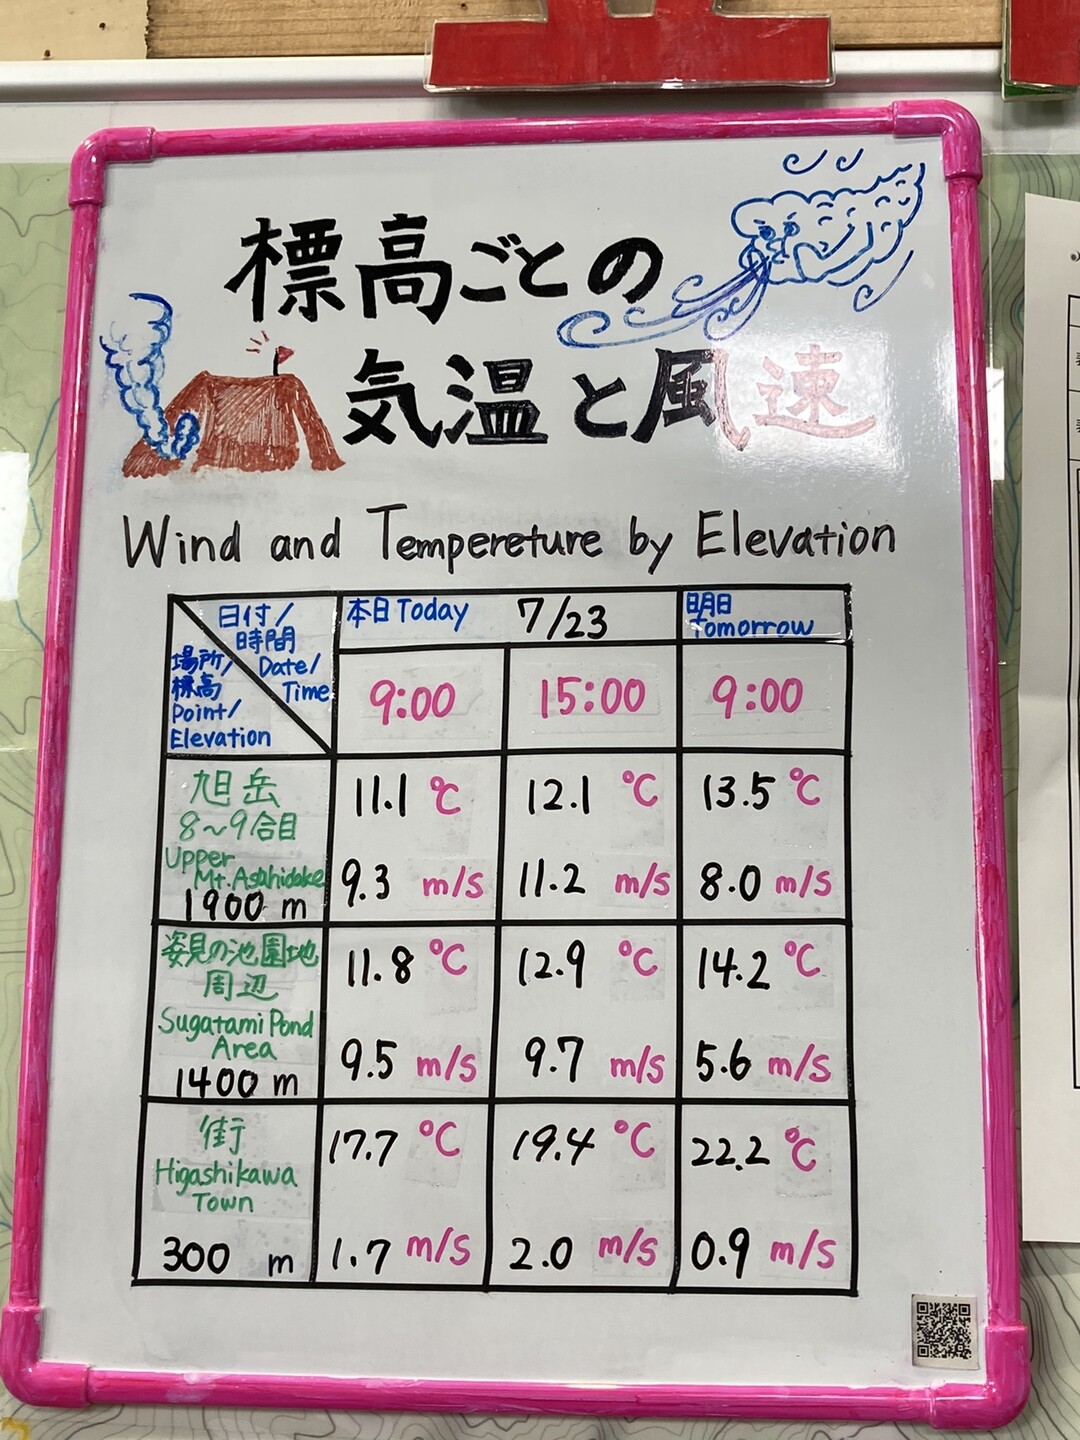 標高ごとの
気温と風速
Wind and Tempereture by Elevation
日付/
時間
Date/
Time
場所/
標高
Point/
Elevation
本日 Today 7/23
明日
Tomorrow
9:00 15:00 9:00
旭岳
8〜9合目
Upper
Mt. Asahidake
1900 m
11.1 ℃ 12.1 ℃ 13.5 ℃
9.3 m/s 11.2 m/s 8.0 m/s
姿見の池園地
周辺
Sugatami Pond
Area
1400 m
11.8 ℃ 12.9 ℃ 14.2 ℃
9.5 m/s 9.7 m/s 5.6 m/s
街
Higashikawa
Town
300 m
17.7 ℃ 19.4 ℃ 22.2 ℃
1.7 m/s 2.0 m/s 0.9 m/s